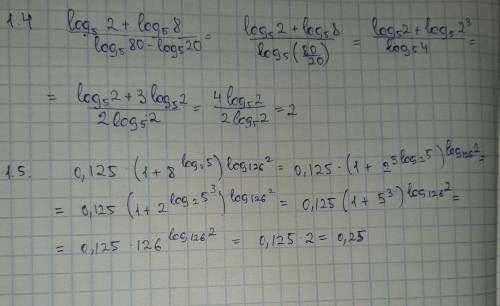 1.4 (log₅ 2 + log₅ 8)/(log₅ 80 - log₅ 20) = (log₅ 2 + log₅ 8)/(log₅ (80/20)) = (log₅ 2 + log₅ 2³)/(log₅ 4) =
= (log₅ 2 + 3 log₅ 2)/(2 log₅ 2) = (4 log₅ 2)/(2 log₅ 2) = 2
1.5. 0,125 (1 + 8^(log₂ 5))^(log₁₂₆ 2) = 0,125 · (1 + 2^(3 log₂ 5))^(log₁₂₆ 2) =
= 0,125 (1 + 2^(log₂ 5³))^(log₁₂₆ 2) = 0,125 (1 + 5³)^(log₁₂₆ 2) =
= 0,125 · 126^(log₁₂₆ 2) = 0,125 · 2 = 0,25